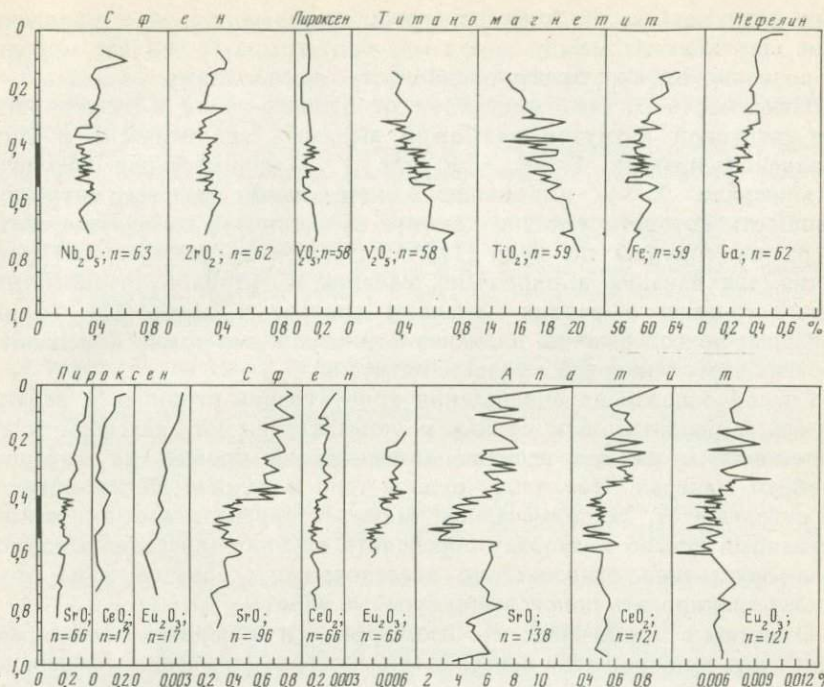 Сфен Пироксен Титаномагнетит Нефелин
0
0,2
0,4
0,6
0,8
1,0
Nb₂O₅; n=63 ZrO₂; n=62 V₂O₅; n=58 V₂O₅; n=58 TiO₂; n=59 Fe; n=59 Ga; n=62
0 0,4 0,8 0 0,4 0 0,2 0 0,4 0,8 14 16 18 20 56 60 64 0 0,2 0,4 0,6 %
Пироксен Сфен Апатит
0
0,2
0,4
0,6
0,8
1,0
SrO; CeO₂; Eu₂O₃; SrO; CeO₂; Eu₂O₃; SrO; CeO₂; Eu₂O₃;
n=66 n=17 n=17 n=96 n=66 n=66 n=138 n=121 n=121
0 0,2 0 0,2 0,003 0,2 0,4 0,6 0 0,2 0,003 0,006 2 4 6 8 10 0,4 0,6 0,8 0,006 0,009 0,012 %